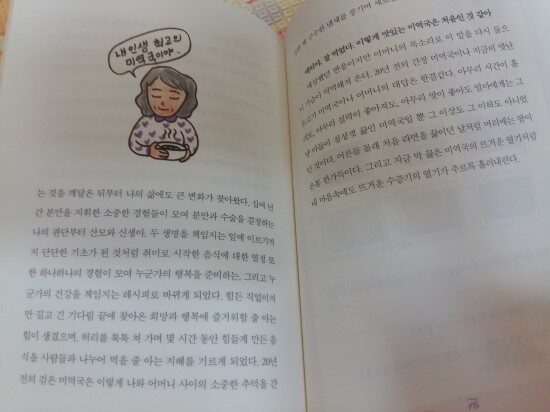 내 인생 최고의
미역국이야..
는 것을 깨달은 뒤부터 나의 삶에도 큰 변화가 찾아왔다. 십여 년
간 분만을 지휘한 소중한 경험들이 모여 분만과 수술을 결정하는
나의 판단부터 산모와 신생아, 두 생명을 책임지는 일에 이르기까
지 단단한 기초가 된 것처럼 취미로 시작한 음식에 대한 열정 또
한 하나하나의 경험이 모여 누군가의 행복을 준비하는, 그리고 누
군가의 건강을 책임지는 레시피로 바뀌게 되었다. 힘든 직업이지
만 길고 긴 기다림 끝에 찾아온 희망과 행복에 즐거워할 줄 아는
힘이 생겼으며, 허리를 툭툭 쳐 가며 몇 시간 동안 힘들게 만든 음
식을 사람들과 나누어 먹을 줄 아는 지혜를 기르게 되었다. 20년
전의 검은 미역국은 이렇게 나와 어머니 사이의 소중한 추억을 간
구수한 냄새를 풍기며 새로
잘 먹었다. 이렇게 맛있는 미역국은 처음인 것 같아
예상했던 반응이지만 어머니의 목소리로 이 말을 다시 들으
니 가슴이 벅차해져 온다. 20년 전의 간장 미역국이나 지금의 맛난
소고기 미역국이나 어머니의 대답은 한결같다. 아무리 시간이 흘
러도 아무리 실력이 좋아져도, 아무리 맛이 좋아도 엄마에게는 그
냥 아들이 정성껏 끓인 미역국일 뿐 그 이상도 그 이하도 아니었
던 것이다. 어른들 몰래 처음 라면을 끓이던 날처럼 머리에는 땀이
온통 한가득이다. 그리고 지금 막 끓은 미역국의 뜨거운 열기처럼
내 마음속에도 뜨거운 수증기의 열기가 주르륵 흘러내린다.